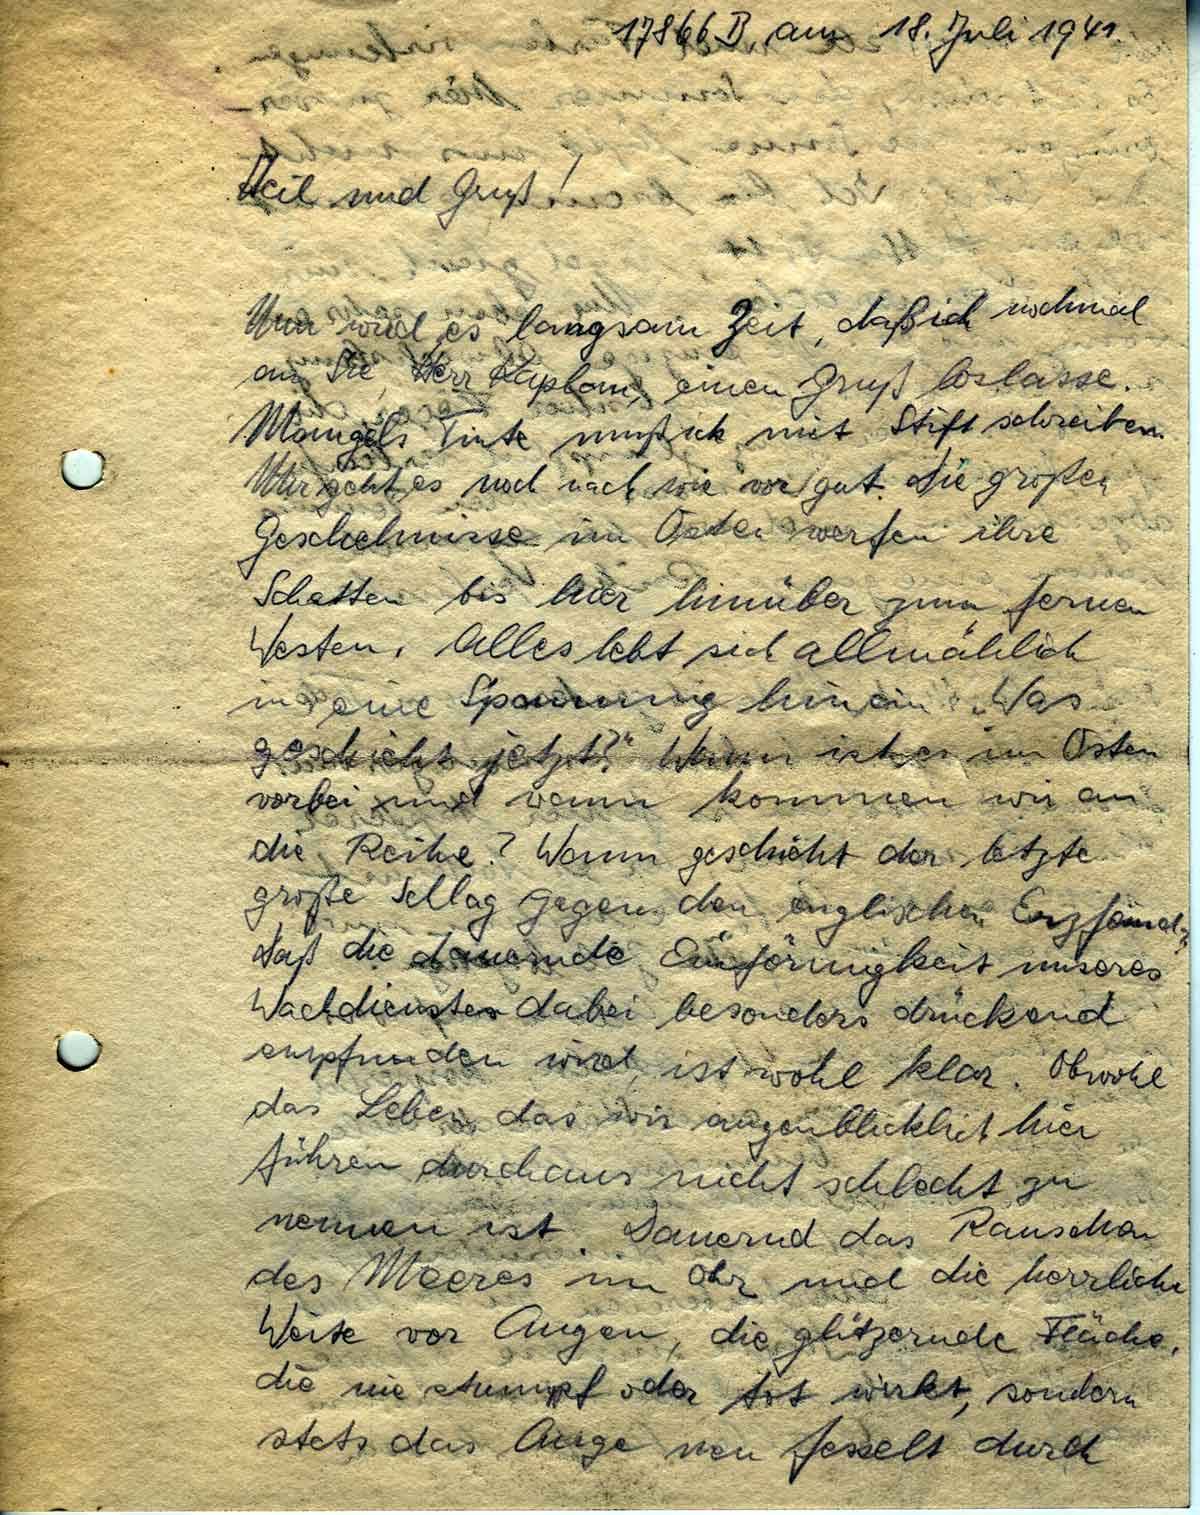 17866 B, am 18. Juli 1941
Heil und Gruß!
Nun wird es langsam Zeit, daß ich nochmal
an Sie, Herr Kaplan, einen Gruß loslasse.
Mangels Tinte muß ich mit Stift schreiben.
Mir geht es noch nach wie vor gut. Die großen
Geschehnisse im Osten werfen ihre
Schatten bis hier hinüber zum fernen
Westen. Alles lebt sich allmählich
in eine Spannung hinein: „Was
geschieht jetzt?" Wann ist es im Osten
vorbei und wann kommen wir an
die Reihe? Wann geschieht der letzte
große Schlag gegen den englischen Erzfeind.
Daß die dauernde Einförmigkeit unseres
Wachdienstes dabei besonders drückend
empfunden wird, ist wohl klar. Obwohl
das Leben, das wir augenblicklich hier
führen durchaus nicht schlecht zu
nennen ist. Dauernd das Rauschen
des Meeres im Ohr und die herrliche
Weite vor Augen, die glitzernde Fläche,
die nie stumpf oder tot wirkt, sondern
stets das Auge neu fesselt durch